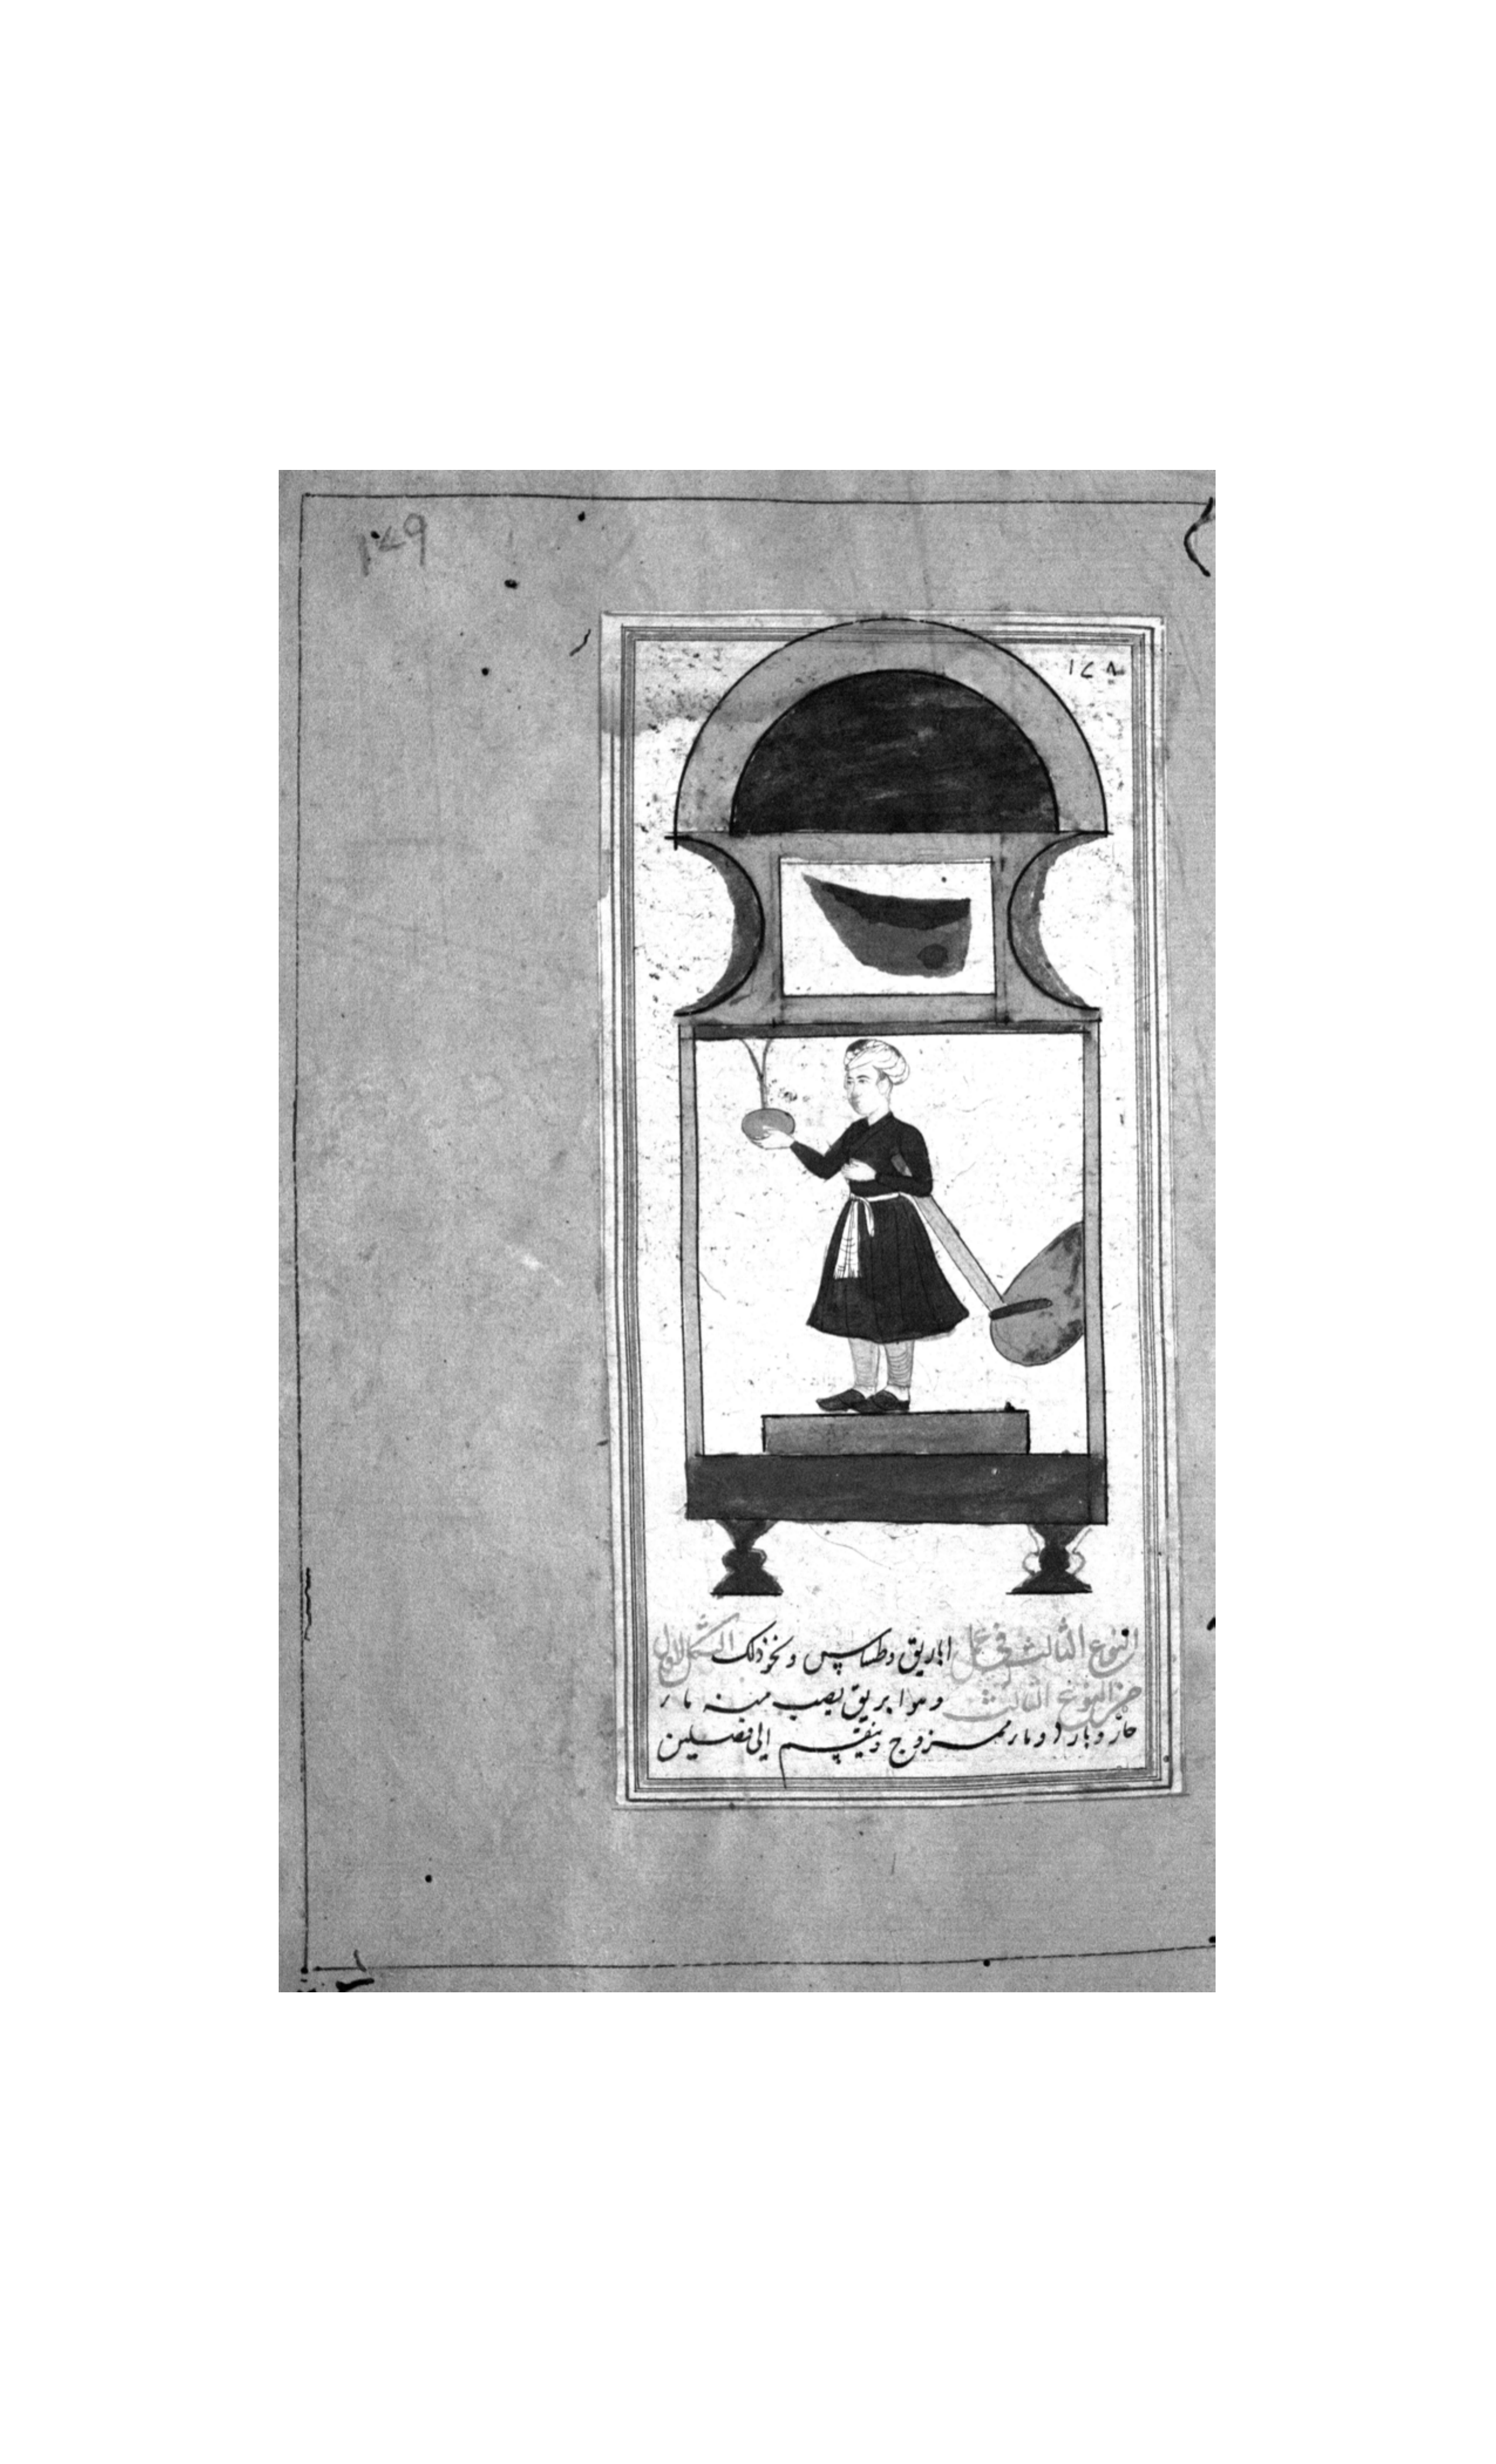 ۱۷۹
۱۷۸
النوع الثالث في عمل اباريق وطساس ونحو ذلك الشكل الاول
من النوع الثالث وهو ابريق يصب منه ماء
حار وبارد وماء ممزوج وينقسم الى فصلين